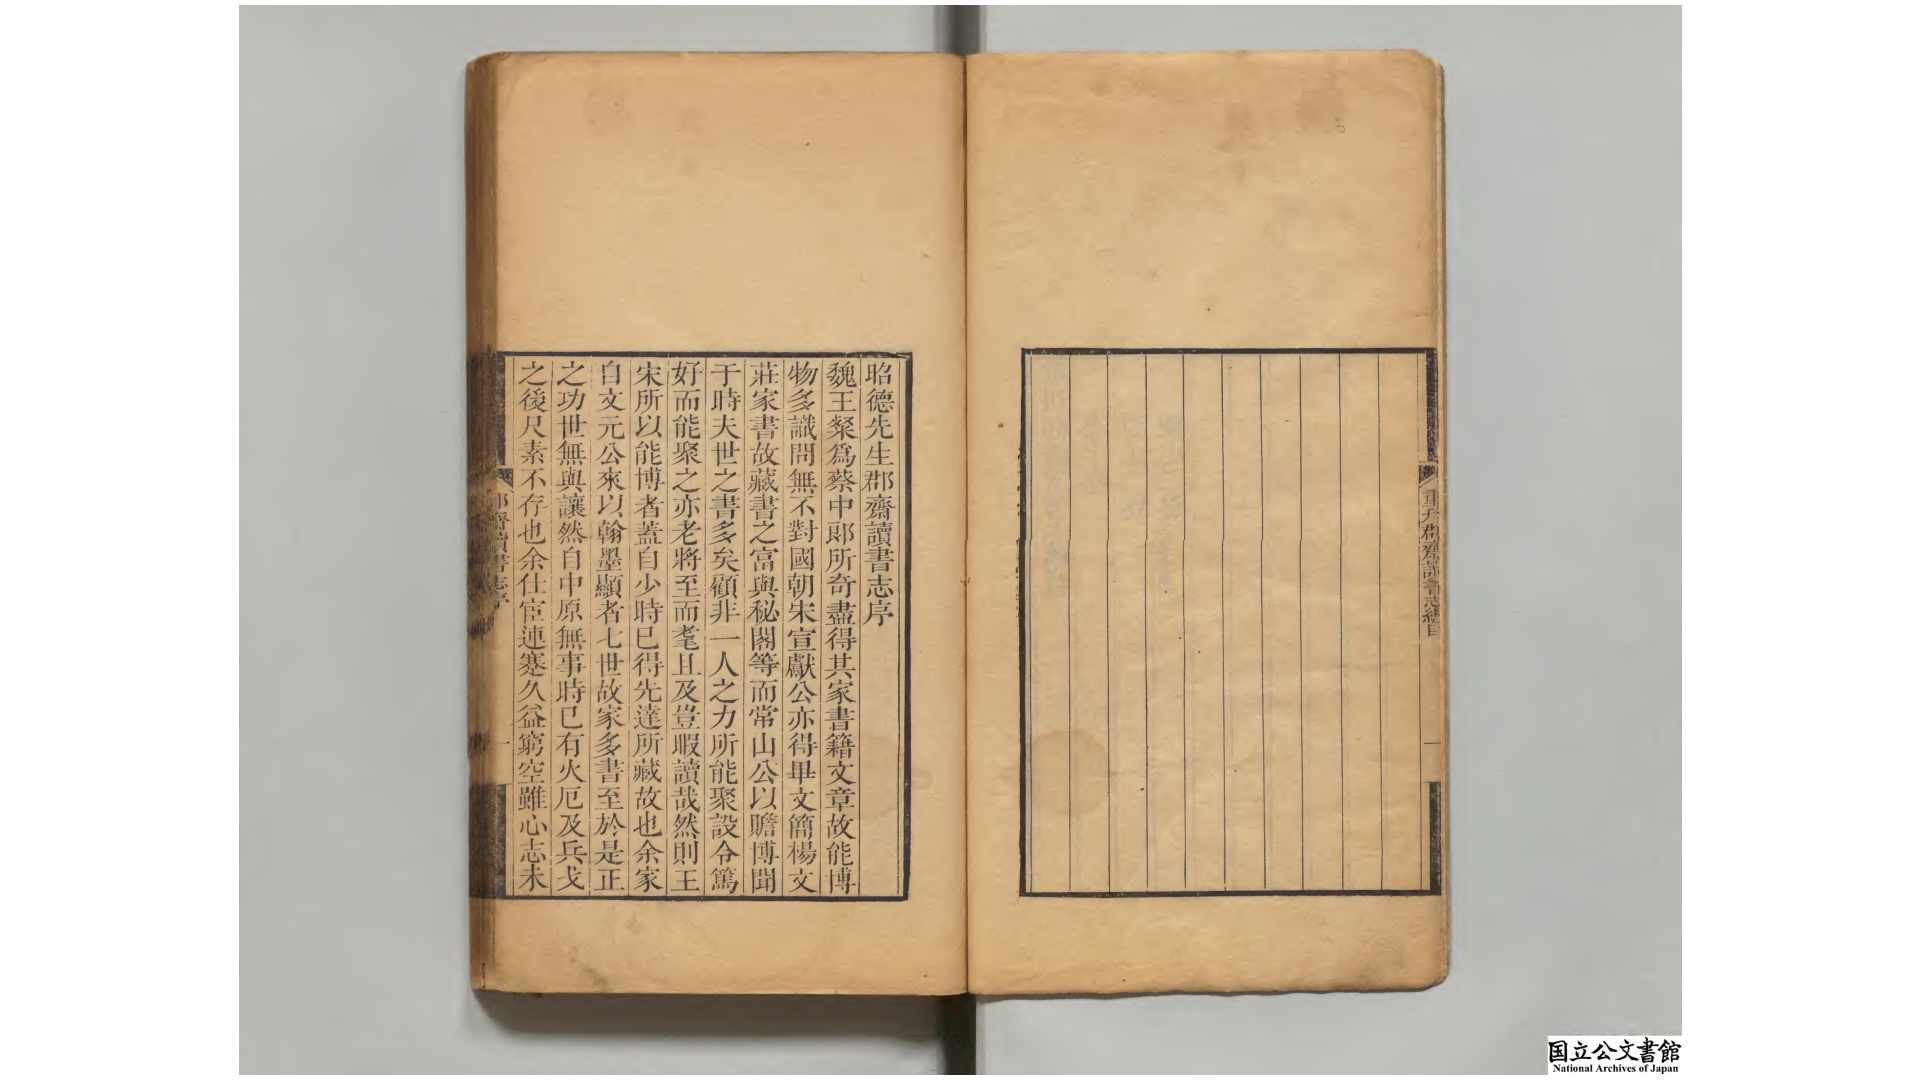 重刊郡齋讀書志總目
一
昭德先生郡齋讀書志序
魏王粲爲蔡中郎所奇盡得其家書籍文章故能博
物多識問無不對國朝宋宣獻公亦得畢文簡楊文
莊家書故藏書之富與秘閣等而常山公以贍博聞
于時夫世之書多矣顧非一人之力所能聚設令篤
好而能聚之亦老將至而耄且及豈暇讀哉然則王
宋所以能博者蓋自少時已得先達所藏故也余家
自文元公來以翰墨顯者七世故家多書至於是正
之功世無與讓然自中原無事時已有火厄及兵戈
之後尺素不存也余仕宦連蹇久益窮空雖心志未
郡齋讀書志序
一
国立公文書館
National Archives of Japan